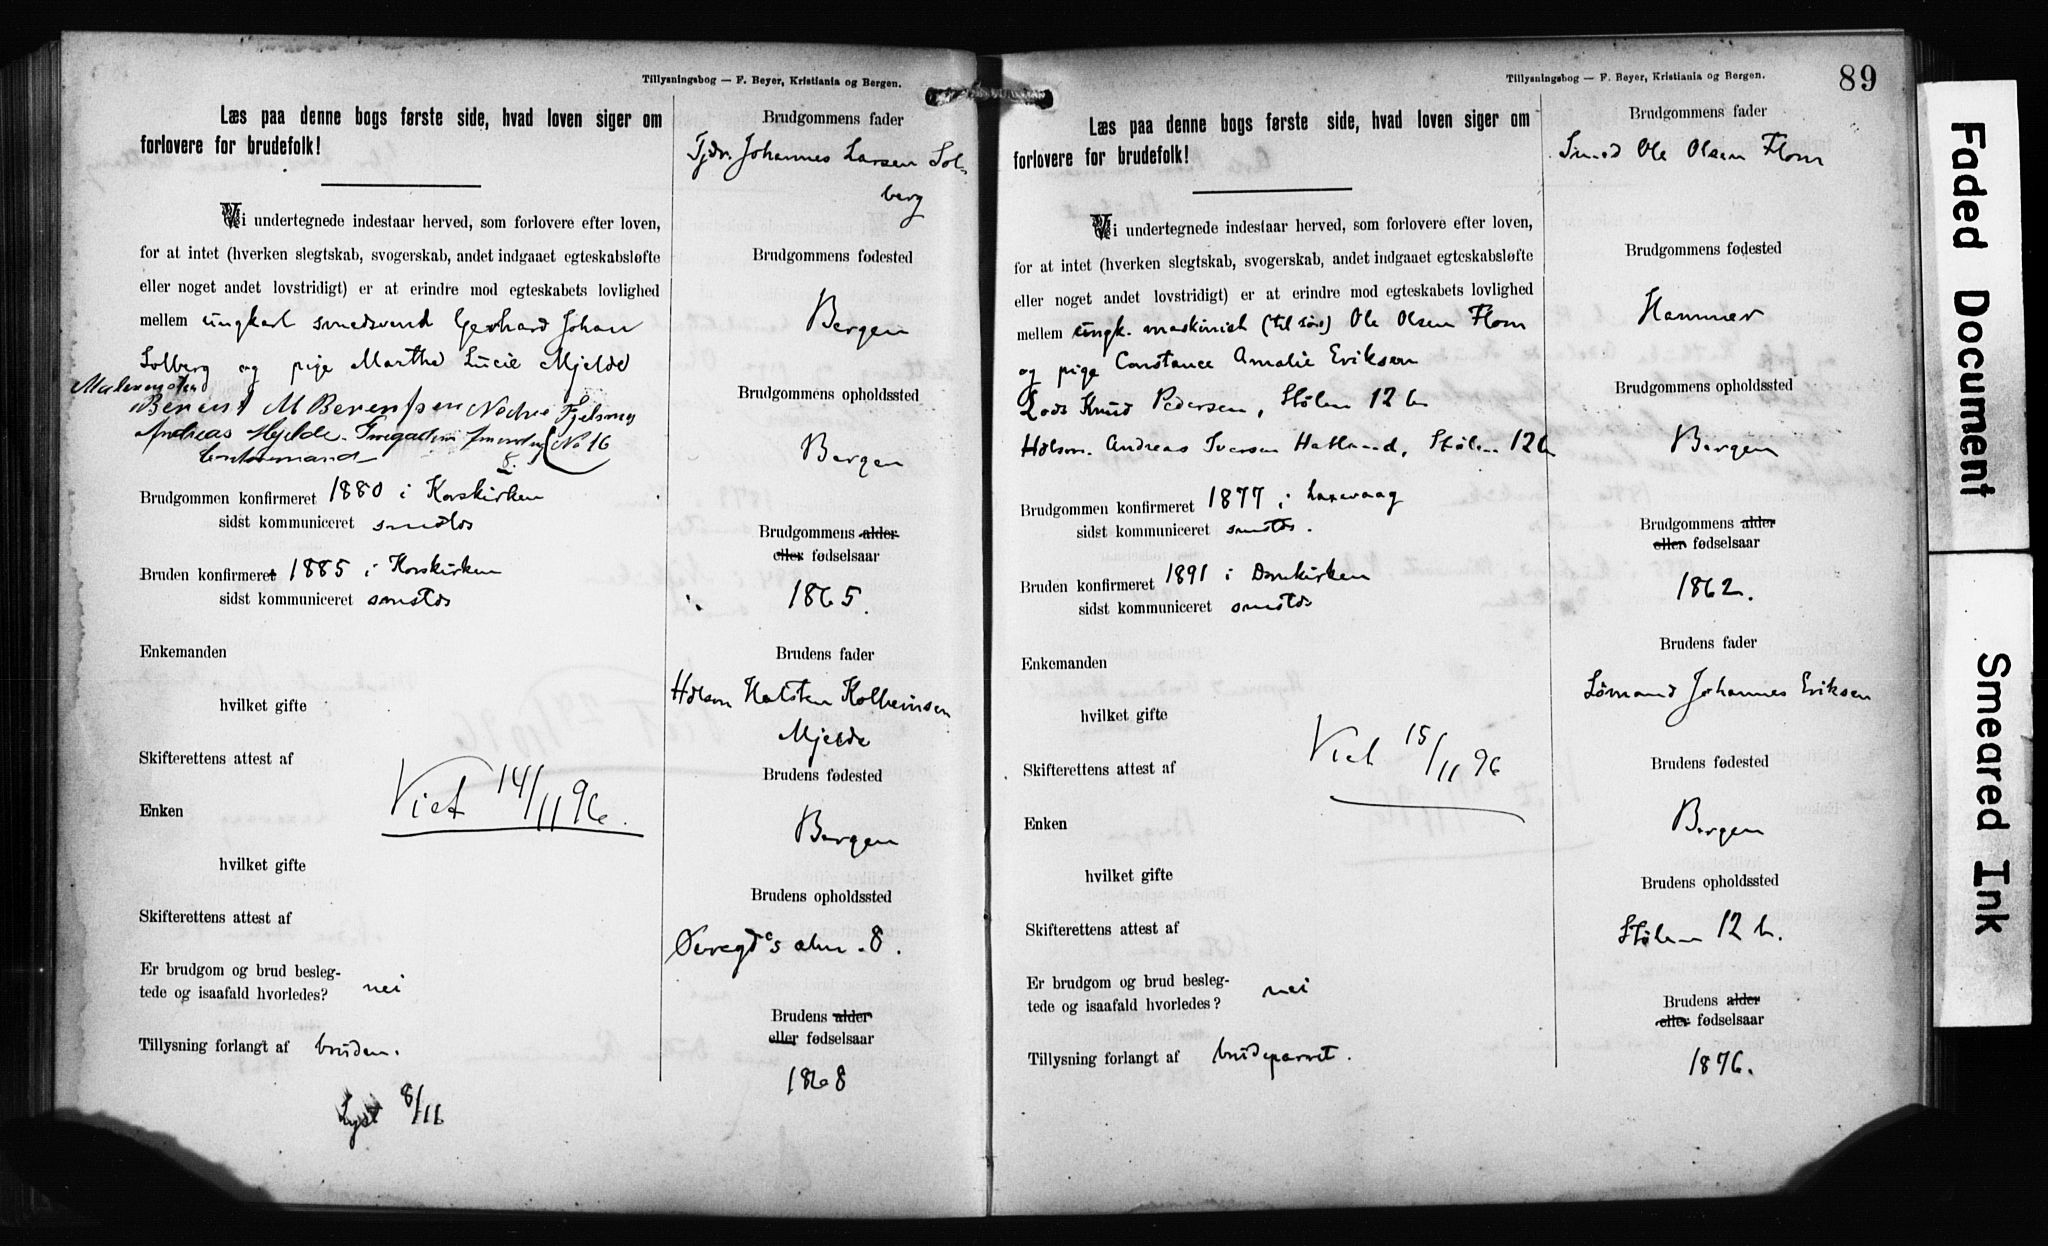 Tillysningsbog — F. Beyer, Kristiania og Bergen.
Læs paa denne bogs første side, hvad loven siger om
forlovere for brudefolk!
Vi undertegnede indestaar herved, som forlovere efter loven,
for at intet (hverken slegtskab, svogerskab, andet indgaaet egteskabsløfte
eller noget andet lovstridigt) er at erindre mod egteskabets lovlighed
mellem ungkarl smedsvend Gerhard Johan
Solberg og pige Marthe Lucie Mjelde
Berent M Berentsen Nedre Fjelsmug
Andreas Mjelde No 16
8.
Brudgommen konfirmeret 1880 i Korskirken
sidst kommuniceret smstds
Bruden konfirmeret 1885 i Korskirken
sidst kommuniceret smstds
Enkemanden
hvilket gifte
Skifterettens attest af
Viet 14/11 96.
Enken
hvilket gifte
Skifterettens attest af
Er brudgom og brud besleg-
tede og isaafald hvorledes? nei
Tillysning forlangt af bruden.
Lyst 8/11
Brudgommens fader
Tjdr. Johannes Larsen Sol-
berg
Brudgommens fødested
Bergen
Brudgommens opholdssted
Bergen
Brudgommens alder
eller fødselsaar
1865.
Brudens fader
Halsten Kolbeinsen
Mjelde
Brudens fødested
Bergen
Brudens opholdssted
Øvregds alm. 8.
Brudens alder
eller fødselsaar
1868
Tillysningsbog — F. Beyer, Kristiania og Bergen.
89
Læs paa denne bogs første side, hvad loven siger om
forlovere for brudefolk!
Vi undertegnede indestaar herved, som forlovere efter loven,
for at intet (hverken slegtskab, svogerskab, andet indgaaet egteskabsløfte
eller noget andet lovstridigt) er at erindre mod egteskabets lovlighed
mellem ungk. maskinist (til søs) Ole Olsen Flom
og pige Constance Amalie Eriksen
Lods Knud Pedersen, Stølen 12 b
Andreas Iversen Hatland, Stølen 12b
Brudgommen konfirmeret 1877 i Laxevaag
sidst kommuniceret smstds.
Bruden konfirmeret 1891 i Domkirken
sidst kommuniceret smstds
Enkemanden
hvilket gifte
Skifterettens attest af
Viet 15/11 96
Enken
hvilket gifte
Skifterettens attest af
Er brudgom og brud besleg-
tede og isaafald hvorledes? nei
Tillysning forlangt af brudeparret.
Brudgommens fader
Smed Ole Olsen Flom
Brudgommens fødested
Hammer
Brudgommens opholdssted
Bergen
Brudgommens alder
eller fødselsaar
1862.
Brudens fader
Sømand Johannes Eriksen
Brudens fødested
Bergen
Brudens opholdssted
Stølen 12 b.
Brudens alder
eller fødselsaar
1876.
Faded Document
Smeared Ink